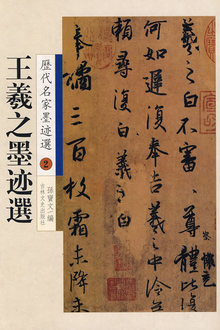 歷代名家墨迹選
2
王羲之墨迹選
孫寶文 編
吉林文史出版社
羲之白不審尊體比復
何如遲復奉告羲之中冷無
賴尋復白羲之白
奉橘三百枚霜未降未